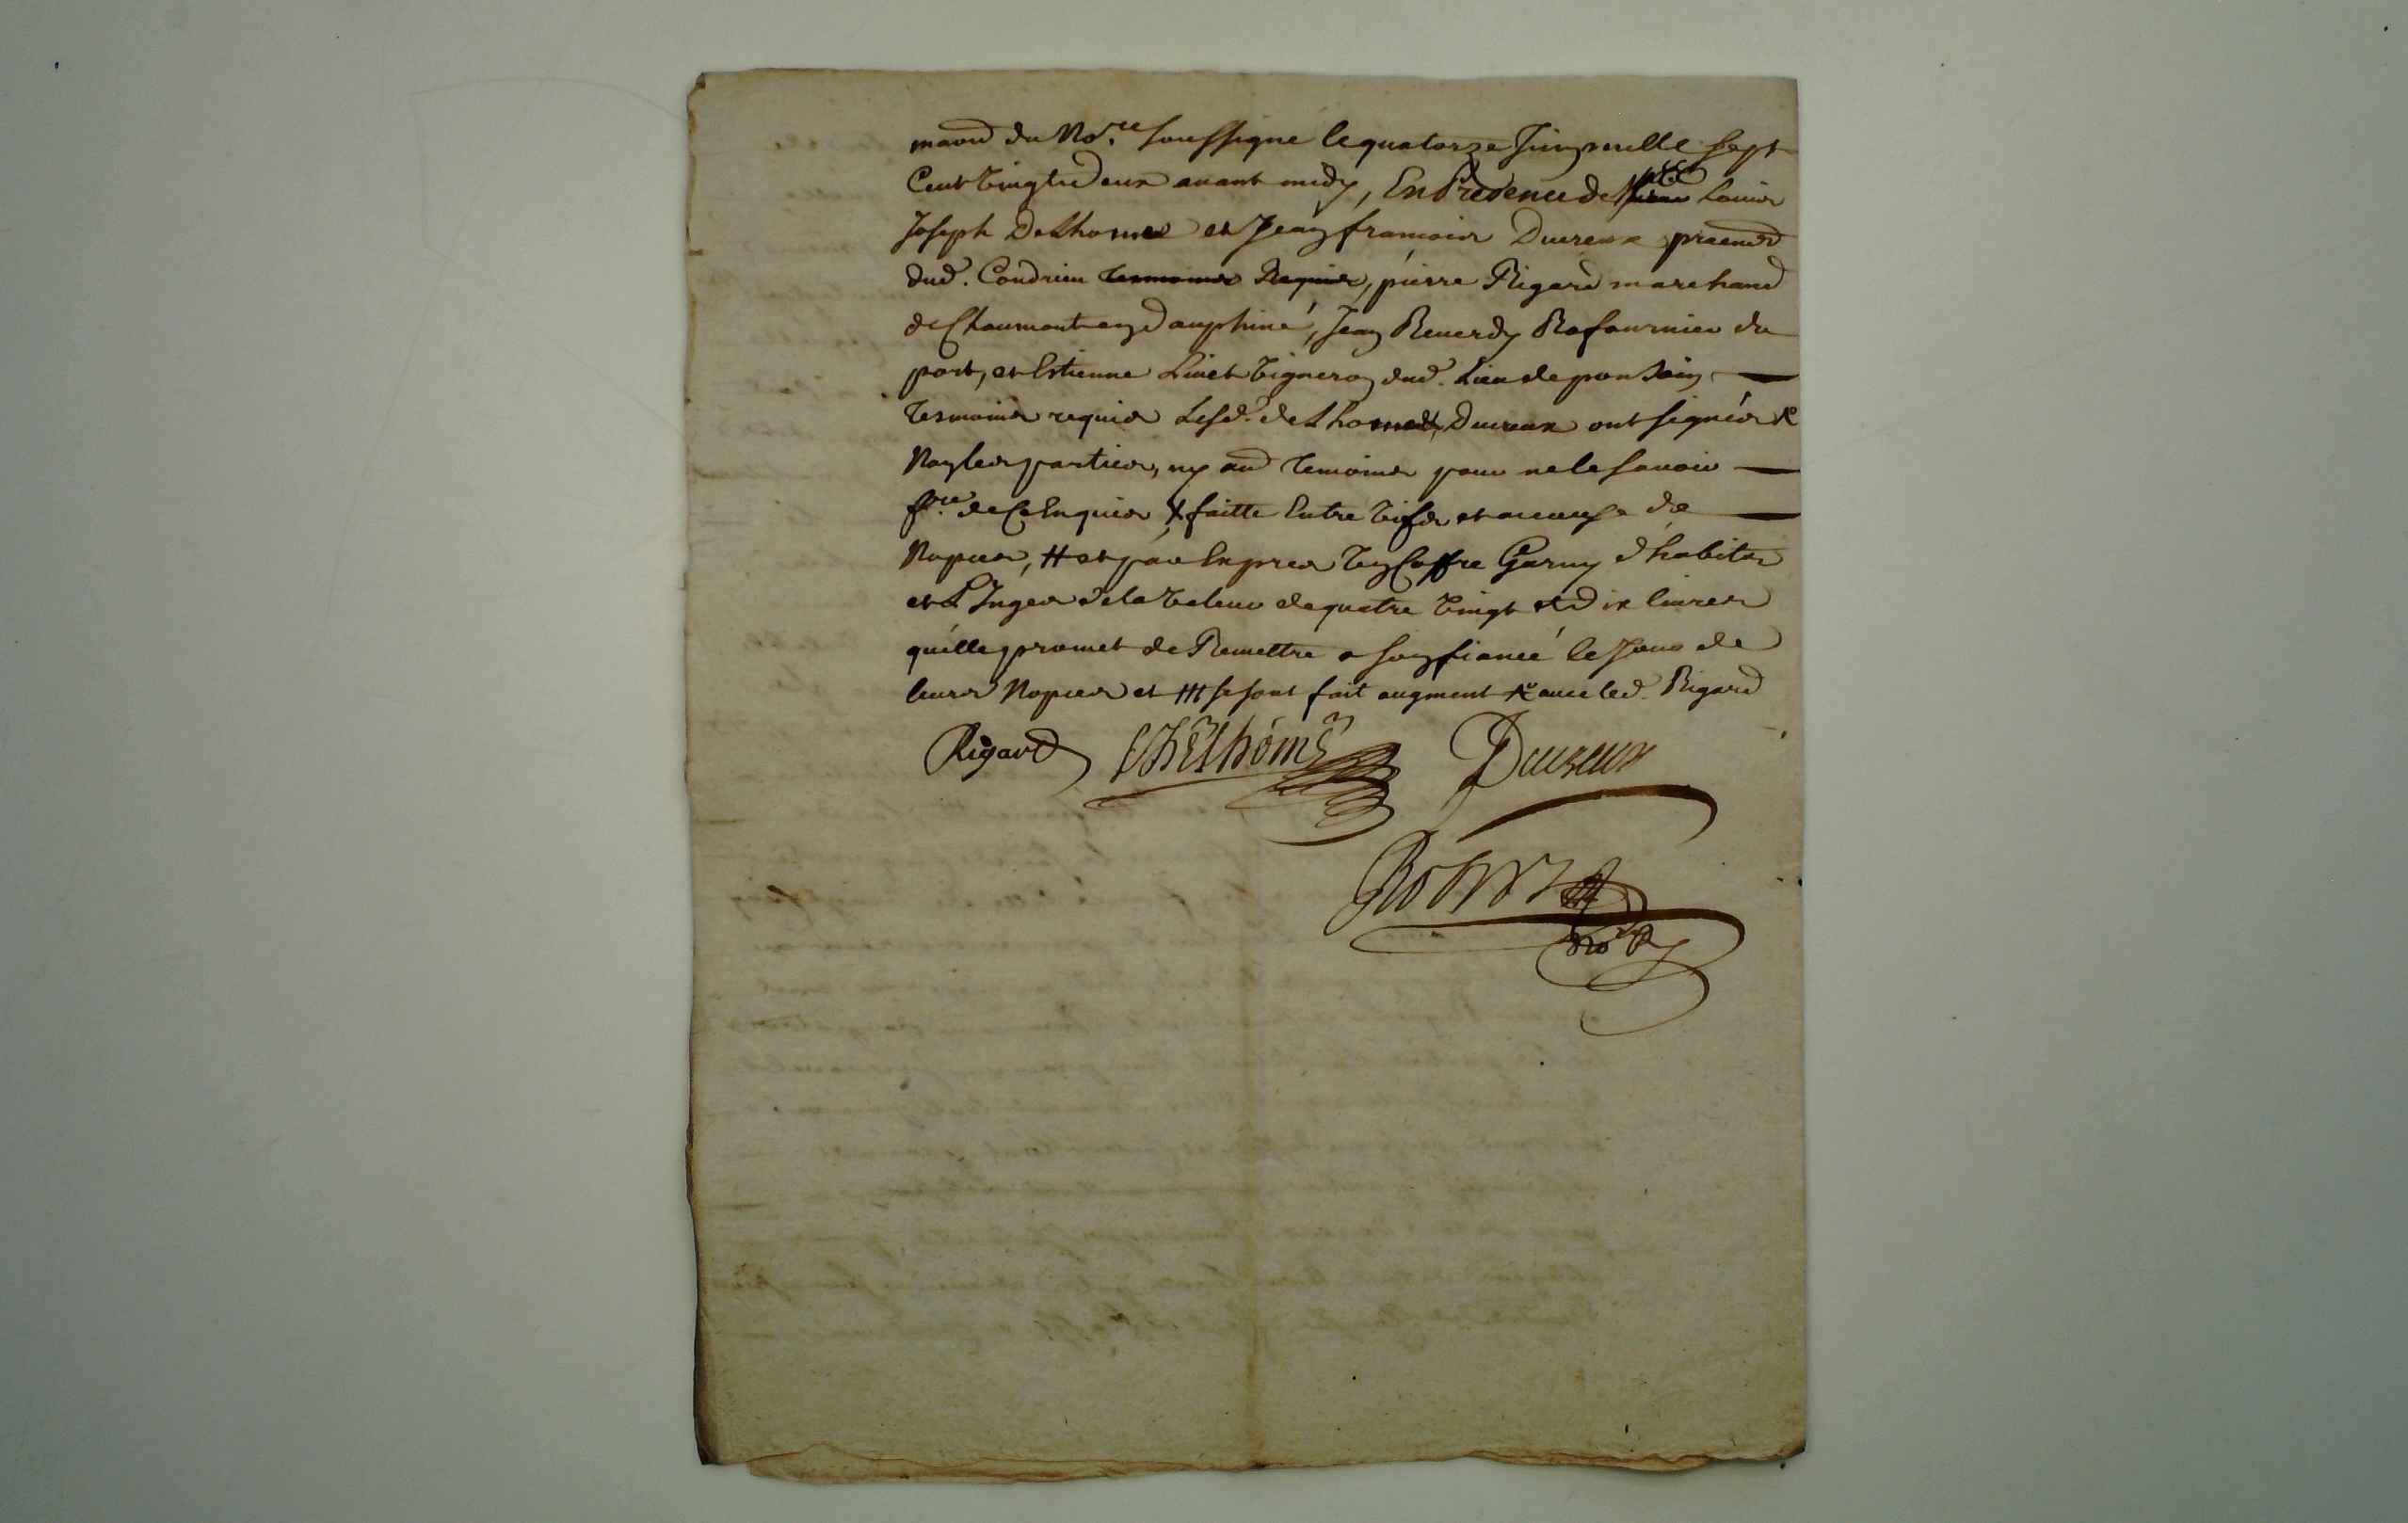 maond du No.re soussigne le quatorze Juin mille sept
Cent Vingt deux avant midy, En Presence de Louis
Joseph Delhome et Jean francois Ducreux praend
dud. Condrieu Tesmoins Requis, pierre Rigard marchand
de Chaumont en dauphiné, Jean Reverdy Rafournier du
port, et Estienne Linet Vigneron dud. Lieu de ponsain
Tesmoins requis Lesd. delhome, Ducreux ont signés &
Non les parties, ny aud Temoins pour ne le savoir
de ce Enquis faitte Entre Vifs et a cause de
Nopces, # et par Exprès Ung Coffre Garny d'habits
et Linges de la Valeur de quatre Vingt et dix livres
quelle promet de Remettre a son fiancé le Jour de
leurs Nopces et fait augment avec led. Rigard
Rigard Delhome Ducreux
No Ry